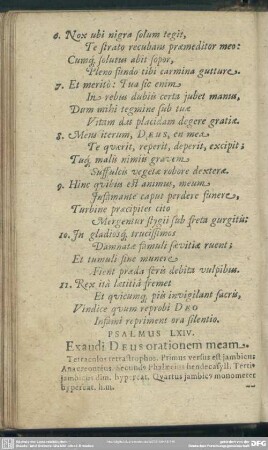 6. Nox ubi nigra solum tegit,
Te strato recubans præmeditor meo:
Cumq; solutus abit sopor,
Pleno fundo tibi carmina gutture.
7. Et meritò: Tua sic enim
In rebus dubiis certa jubet manus,
Dum mihi teguine sub tuæ
Vitam das placidam degere gratiæ.
8. Mens iterum, DEUS, en mea
Te quærit, reperit, deperit, excipit;
Tuq; malis nimiùm gravem
Suffulcis vegetæ robore dexteræ.
9. Hinc quibus est animus, meum
Insontante caput perdere funere,
Turbine præcipites cito
Mergentur stygii sub freta gurgitis:
10. In gladiosq; trucissimos
Damnatæ famuli sævitiæ ruent;
Et tumuli sine munere
Fient præda feris debita vulpibus.
11. Rex ità lætitiâ fremet
Et quicumq; piis invigilant sacris,
Vindice quum reprobi DEO
Infami repriment ora silentio.
PSALMUS LXIV.
Exaudi DEUS orationem meam.
Tetracolos tetrastrophos. Primus versus est jambicus
Anacreonteus. Secundus Phalæcius hendecasyll. Terti⁹
jambic⁹ dim. hypercat. Quartus jambic⁹ monometer
hypercat. h.m.